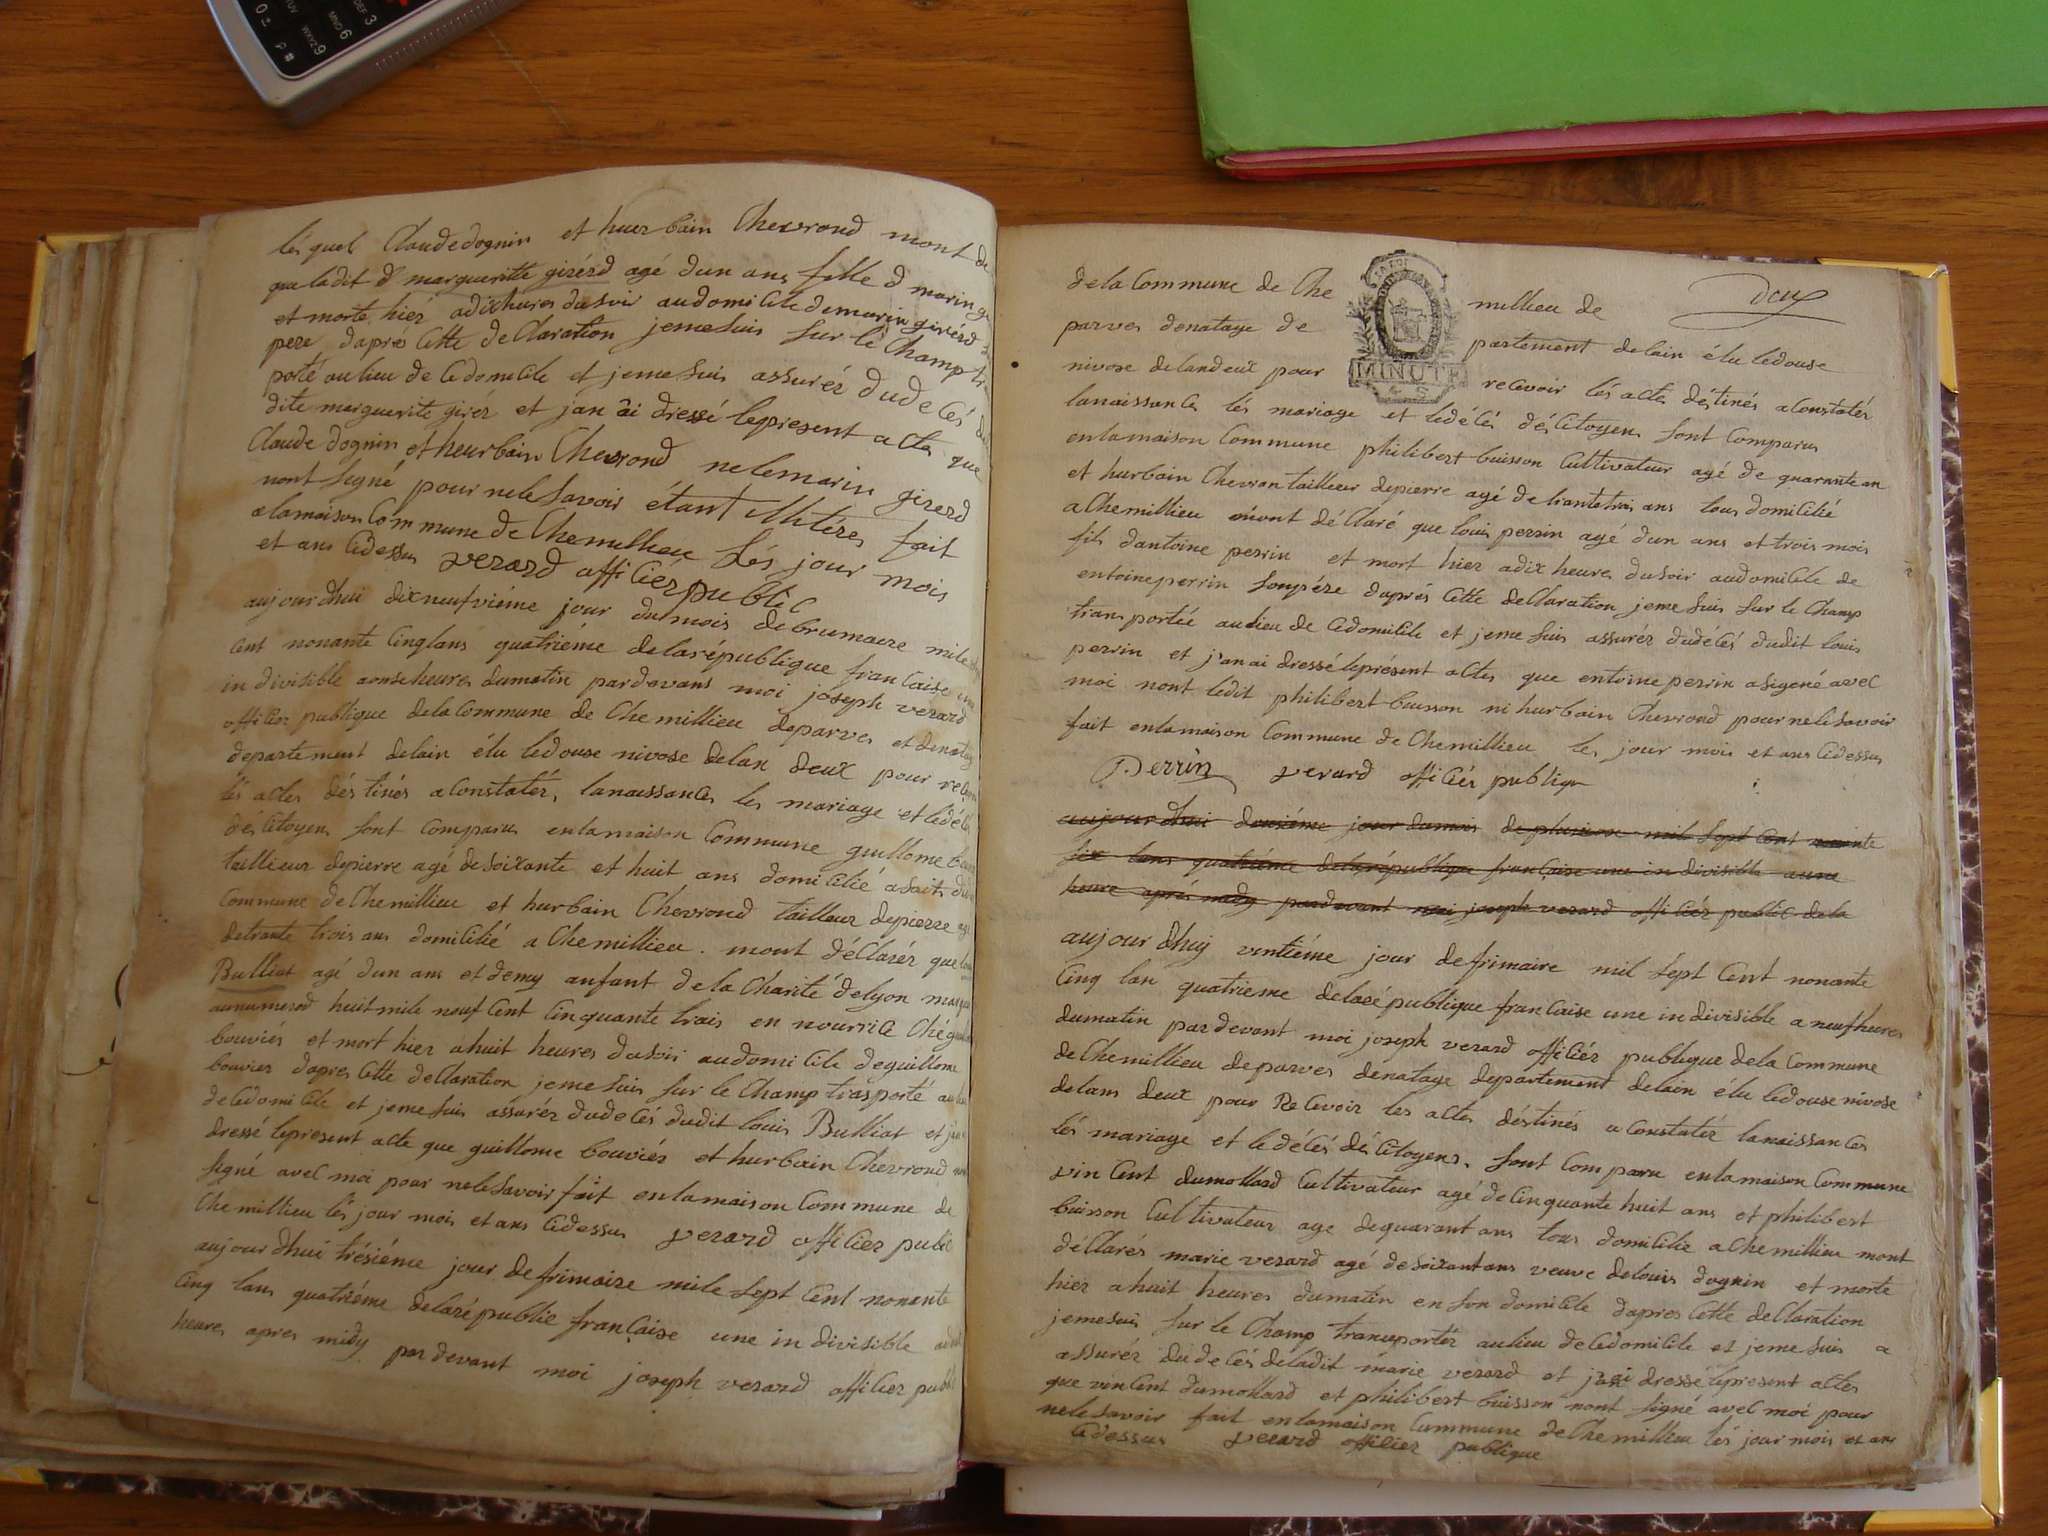 DEF 3
MNO 6
WXYZ 9
TUV
0
P #
lés quel Claude dognin et hurbain Chevrond mont de
que ladit d margueritte girérd agé dun ans fille d marin
et morte hiér adix hures du soir au domicile de marin girérd
pere dapres cette declaration jeme suis sur le Champ
porté au lieu de ce domicile et jeme suis assurér du decés
dite marguerite girér et jan ai dressé le present acte que
Claude dognin et heurbain Chevrond ne le marin girerd
nont signé pour ne le savoir étant illitéres fait
a la maison Commune de Chemillieu lés jour mois
et ans cidessus verard officiér public
aujourdhui dixneufviéme jour du mois de brumaire mile
cent nonante cinq lans quatriéme de la république francaise
in divisible aonse heures du matin pardevans moi joseph verard
officiér publique de la Commune de Chemillieu de parves et denatage
departement delain élu le douse nivose de lan deux pour
lés actes déstinés a Constatér, la naissances les mariage et le décés
dés Citoyens sont comparus en la maison Commune guillome
taillieur depierre agé de soixante et huit ans domicilié
Commune de Chemillieu et hurbain Chevrond tailleur depierre
de trante trois ans domicilié a Chemillieu . mont déclarér que
Bulliat agé dun ans et demy anfant de la Charité de lyon
au numerod huit mile neuf cent cinquante trois en nourrice ché
bouviér et mort hier a huit heures du soir au domicile de guillome
bouvier dapres cette declaration jeme suis sur le Champ trasporté au
de ce domicile et jeme suis assurér du decés dudit louis Bulliat et
dressé le present acte que guillome bouviér et hurbain Chevrond
signé avec moi pour ne le savoir fait en la maison Commune de
Chemillieu lés jour mois et ans cidessus verard officier public
aujourdhui trésiéme jour de frimaire mile sept cent nonante
cinq lans quatriéme de la républic française une in divisible
heures apres midy par devant moi joseph verard officier public
deux
de la Commune de Che millieu de
parves denatage de partement delain élu le douse
nivose de lan deux pour recevoir lés actes déstinés a Constatér
MINUTE
la naissances lés mariage et le décés dés Citoyens sont Comparus
en la maison Commune philibert buisson Cultivateur agé de quarante an
et hurbain Chevron tailleur depierre agé de trante trois ans tous domicilié
a Chemillieu mont déclaré que louis perrin agé dun ans et trois mois
fils dantoine perrin et mort hier adix heures du soir au domicile de
entoine perrin son pére dapres cette declaration jeme suis sur le Champ
transportée au lieu de ce domicile et jeme suis assurér du décés dudit louis
perrin et jan ai dressé le présent actes que entoine perrin a sigené avec
moi nont ledit philibert buisson ni hurbain Chevrond pour ne le savoir
fait en la maison Commune de Chemillieu les jour mois et ans cidessus
Perrin verard officiér publique
aujourdhui deusiéme jour du mois de pluviose mil sept cent nonante
six lans quatriéme de la république française une in divisible a une
heure aprés midy pardevant moi joseph verard officiér public de la
aujourdhuy vintiéme jour de frimaire mil sept Cent nonante
Cinq lan quatrieme de la république francaise une in divisible a neuf heures
du matin par devant moi joseph verard officiér publique de la Commune
de Chemillieu de parves denatage departement delain élu le douse nivose
de lans deux pour Recevoir les actes déstinés a constatér la naissances
lés mariage et le décés dés Citoyens. sont Comparu en la maison Commune
vincent dumollard Cultivateur agé de Cinquante huit ans et philibert
buisson Cultivateur age de quarant ans tous domicilie a Chemillieu mont
déclarés marie verard agé de soixant ans veuve de louis dognin et morte
hier a huit heures du matin en son domicile dapres cette declaration
jeme suis sur le Champ transportér au lieu de ce domicile et jeme suis a
assurér du decés de ladit marie verard et jan ai dressé le present actes
que vincent dumollard et philibert buisson nont signé avec moi pour
ne le savoir fait en la maison Commune de Chemillieu lés jour mois et ans
cidessus verard officier publique